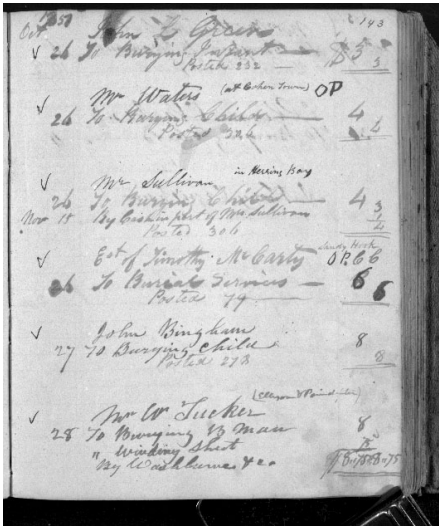 143
Oct John L Green
✓ 26 To Burying Infant — $3
Posted 232 — 3
✓ Mr Waters (at Goshen Town) OP
26 To Burying Child — 4
Posted 326 4
✓ Mr Sullivan in Herring Bay
26 To Burying Child — 4
Nov 15 By Cash in part of Mr Sullivan 3
Posted 306
✓ Est of Timothy McCarty Sandy Hook OP. 66
26 To Burial Services — 6
Posted 79 — 6
✓ John Bingham
27 To Burying Child 8
Posted 273 8
✓ Mr Wm Tucker
28 To Burying B man 8
" Winding Sheet
By Washburne & co